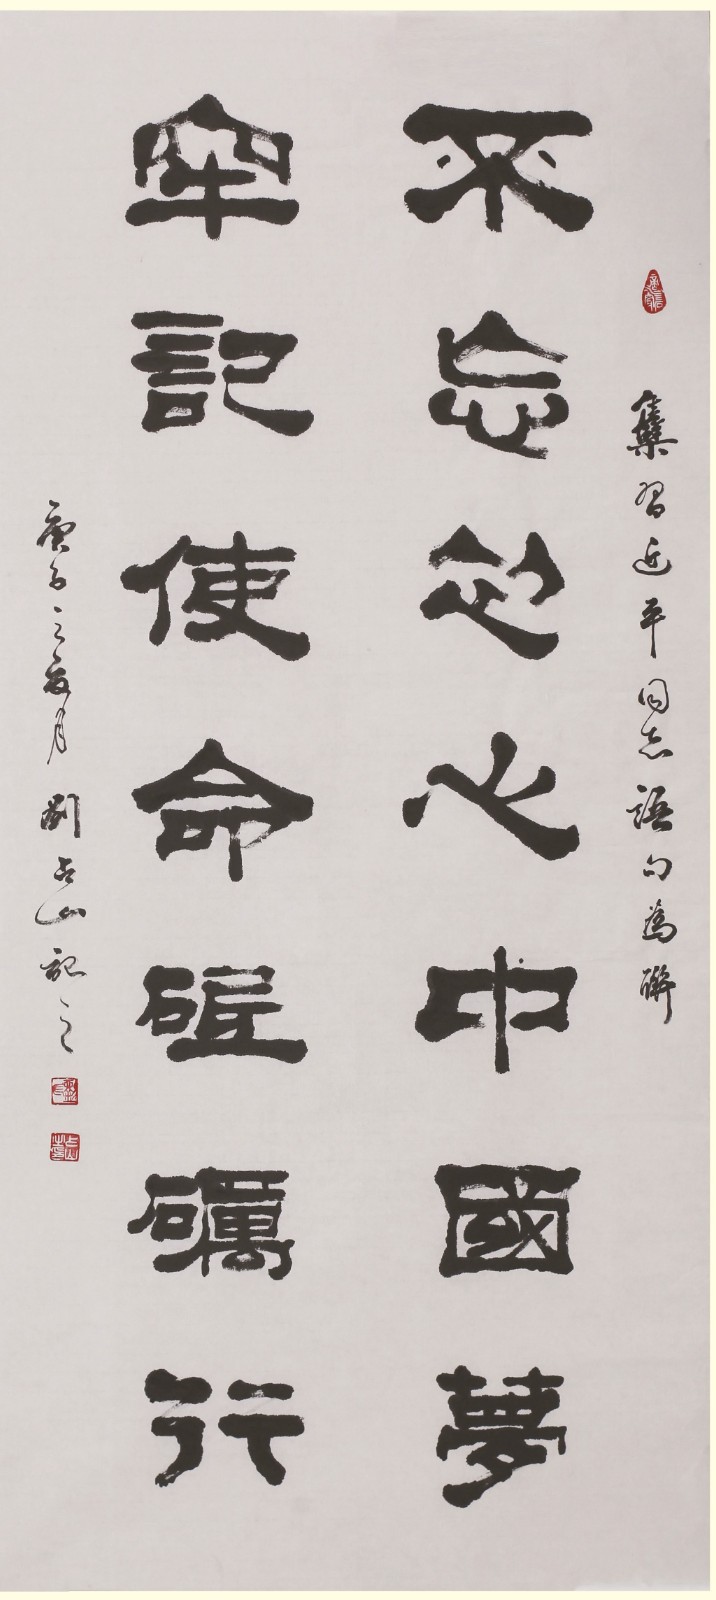 集習近平同志語句為聯
不忘初心中國夢
牢記使命砥礪行
庚子之夏月劉占山記之